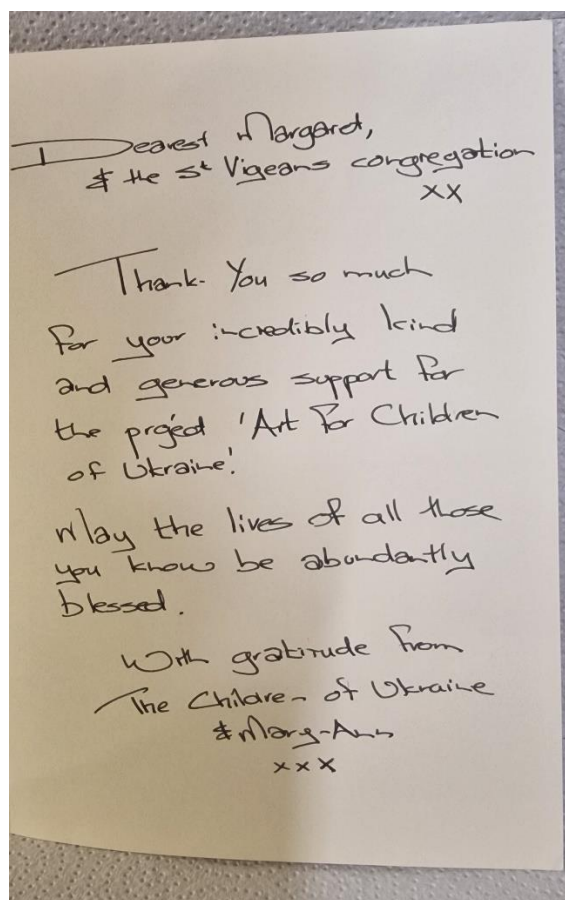 Dearest Margaret,
& the St Vigeans congregation
xx
Thank You so much
for your incredibly kind
and generous support for
the project 'Art for Children
of Ukraine!'
May the lives of all those
you know be abundantly
blessed.
With gratitude from
The Children of Ukraine
& Mary-Ann
xxx